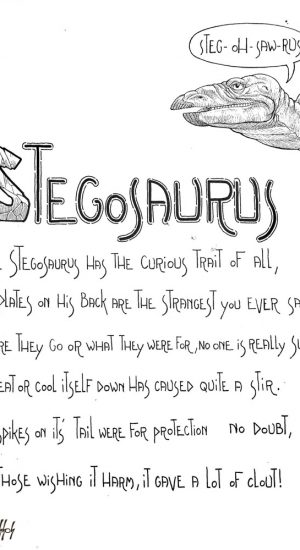 STEG-OH-SAW-RUS
STEGOSAURUS
STEGOSAURUS HAS THE CURIOUS TRAIT OF ALL,
PLATES ON HIS BACK ARE THE STRANGEST YOU EVER SA
RE THEY GO OR WHAT THEY WERE FOR, NO ONE IS REALLY SU
EAT OR COOL ITSELF DOWN HAS CAUSED QUITE A STIR.
SPIKES ON ITS' TAIL WERE FOR PROTECTION NO DOUBT,
THOSE WISHING IT HARM, IT GAVE A LOT OF CLOUT!